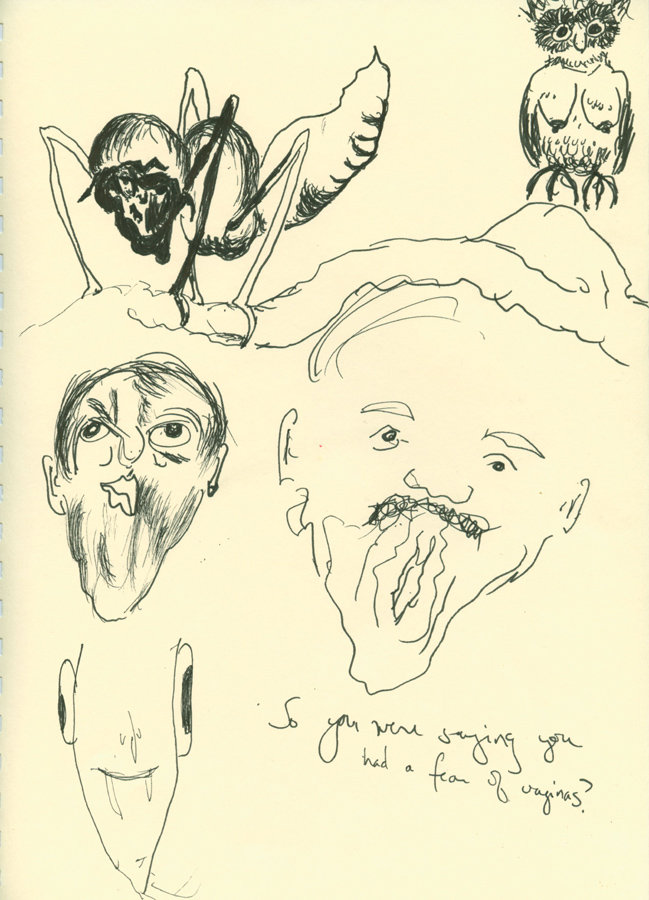 So you were saying you
had a fear of vaginas?